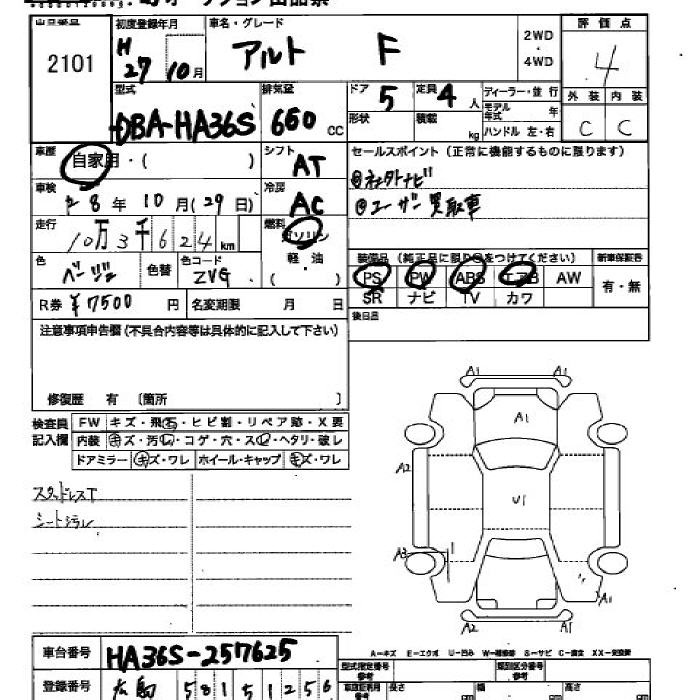 2101
初度登録年月
H 27 10月
車名・グレード
アルト F
2WD
・
4WD
評価点
4
外装 内装
C C
型式
DBA-HA36S
排気量
660 CC
ドア 5
定員 4 人
ディーラー・並行
モデル年式 年
ハンドル 左・右
形状
積載 kg
車歴
自家用・( )
シフト
AT
セールスポイント (正常に機能するものに限ります)
車検
28年 10月(29日)
冷房
AC
走行
10万3千624km
燃料
ガソリン
軽油
( )
色
ベージュ
色替
色コード
ZVG
装備品 (純正品に限り○をつけてください)
新車保証書
PS PW ABS エアB AW
SR ナビ TV カワ
有・無
R券 ¥7500 円
名変期限 月 日
後日品
注意事項申告欄(不具合内容等は具体的に記入して下さい)
修復歴 有 〔箇所 〕
検査員
記入欄
FW キズ・飛石・ヒビ割・リペア跡・X要
内装 キズ・汚レ・コゲ・穴・スレ・ヘタリ・破レ
ドアミラー キズ・ワレ ホイール・キャップ キズ・ワレ
スタッドレスT
A1 A1
A1
A2
U1
A3
A1
A2 A2
A-キズ E-エクボ U-凹み
車台番号
HA36S-257625
登録番号
広島 581 5 1256
型式指定番号
参考
類別区分番号
参考
長さ
幅
高さ